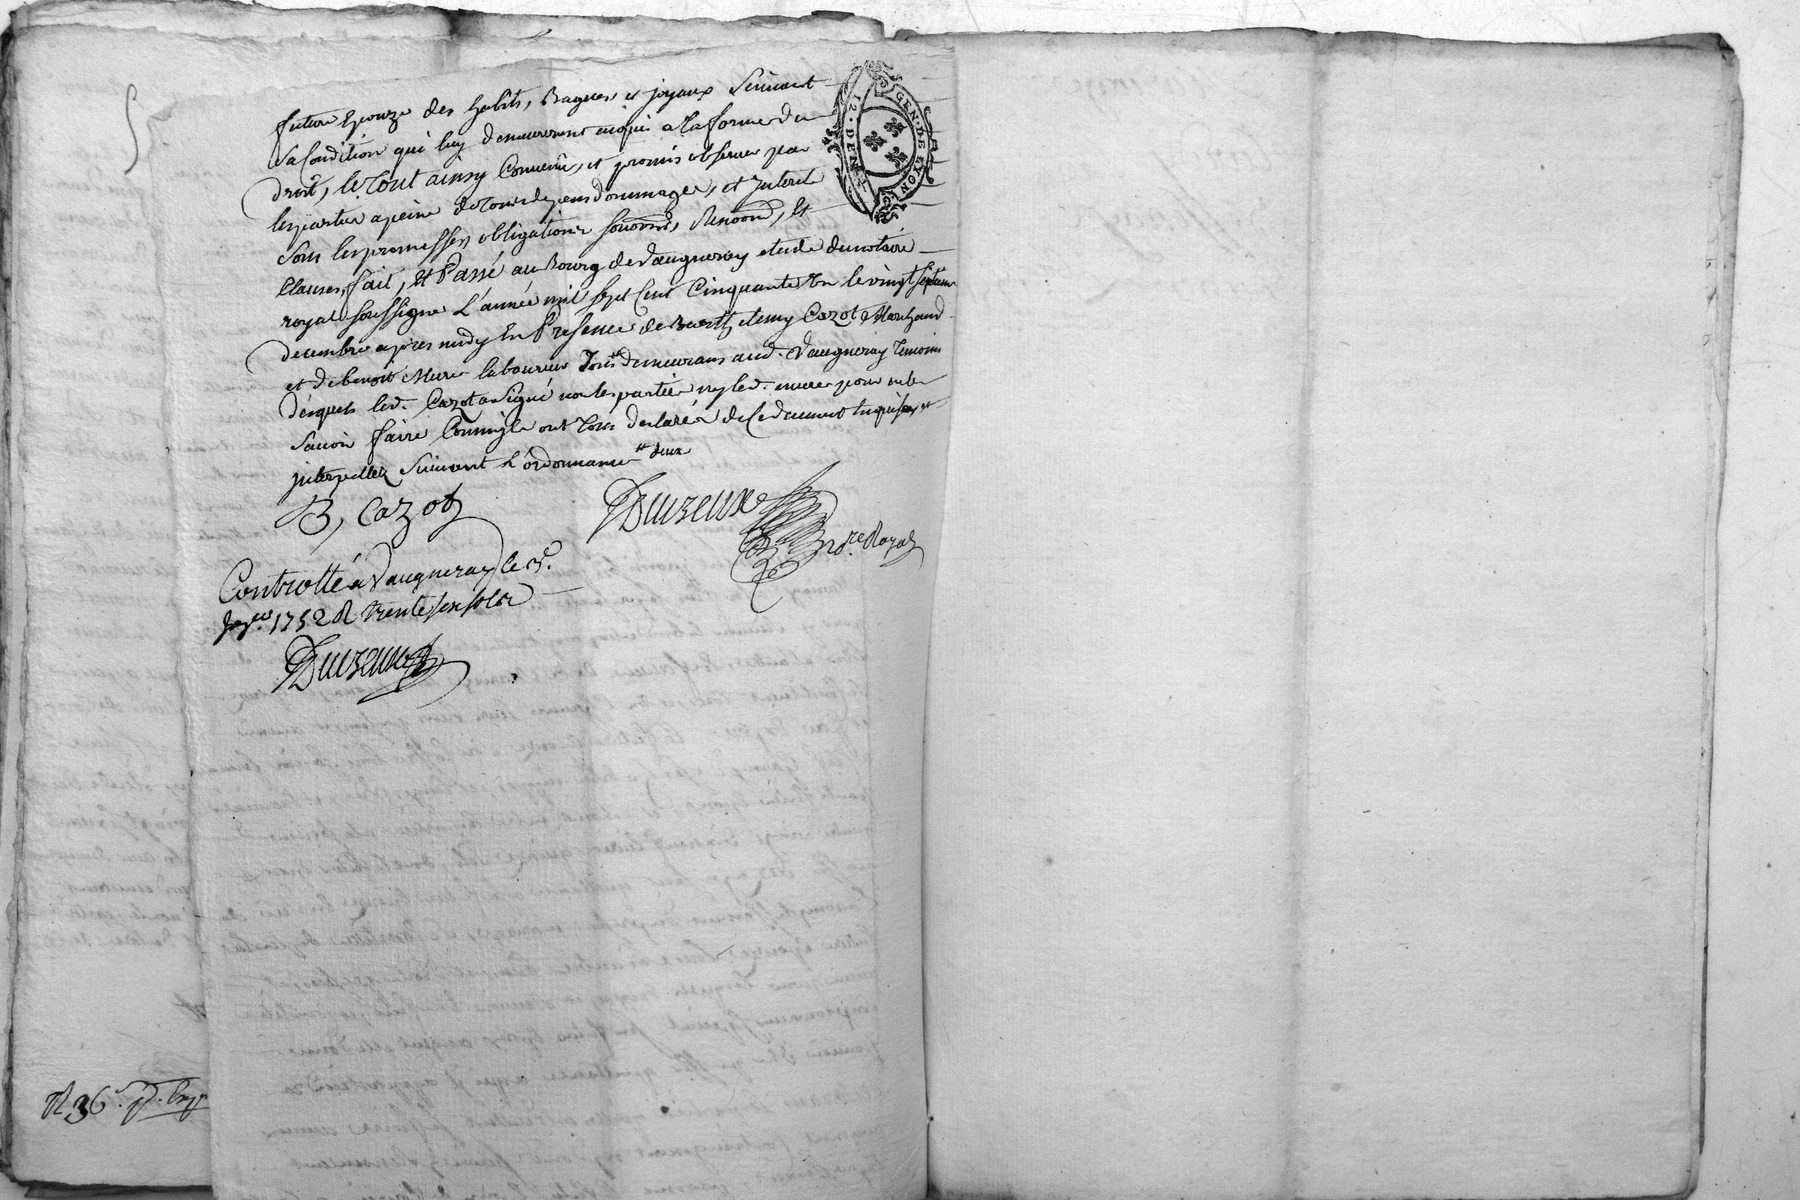 future Epouze des habits, Bagues et joyaux Suivant
sa Condition qui luy demeureront acquis a la forme du
droit, le tout ainsy Convenû, et promis observer par
les parties a peine de tous depens dommages, et Interets
sous les promesses, obligations, soumis, Renoon, Et
Clauses, fait, Et Passé au Bourg de Vaugneray etude du notaire
royal soussigné L'année mil sept Cent Cinquante Un le vingt septieme
decembre apres midy En Presence de Barthelemy Cazot Marchand
et de benoit Mure laboureur Tous demeurans aud. Vaugneray temoins
desquels led. Cazot a signé non les parties ny led. mure pour ne le
sauoir faire Comme ils ont tous declaré de ce duement Enquis et
interpellez Suiuant L'ordonnance deux
B, Cazot
Duizeux
n.re Royal
Controllé a Vaugneray le
janer. 1752 R trente six sols
Duizeux
GEN. DE LYON
12. DEN.
R 36 s.